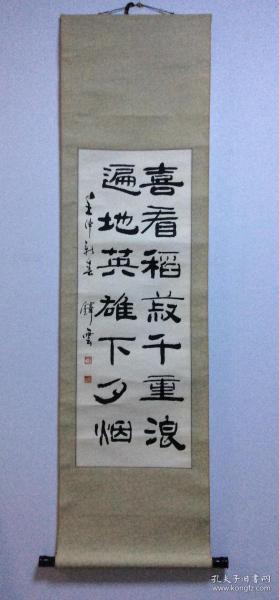 喜看稻菽千重浪
遍地英雄下夕烟
壬申新春 锋云
孔夫子旧书网
kongfz.com